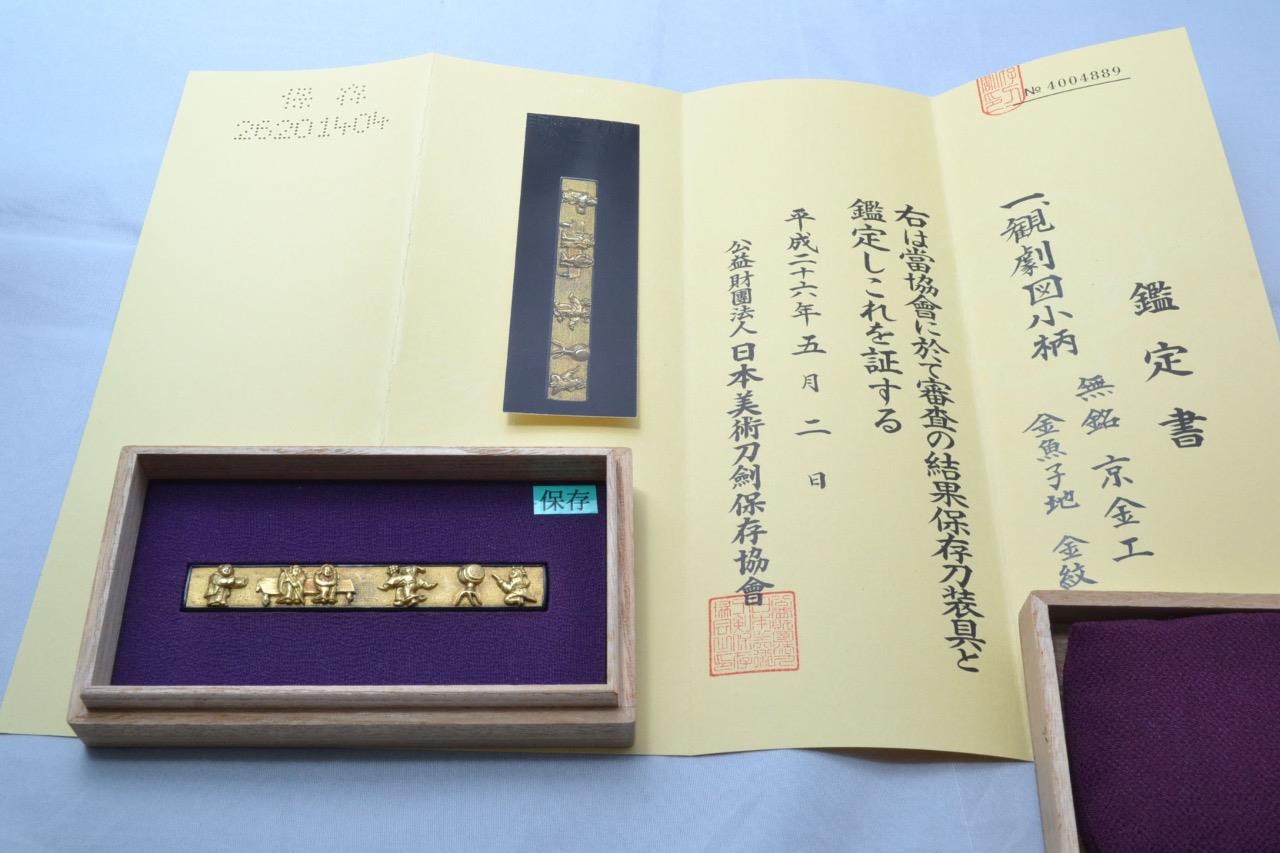 № 4004889
鑑定書
一、観劇図小柄
無銘 京金工
金魚子地 金紋
右は當協會に於て審査の結果保存刀装具と
鑑定しこれを証する
平成二十六年五月二日
公益財團法人 日本美術刀劍保存協會
保存
26201404
保存